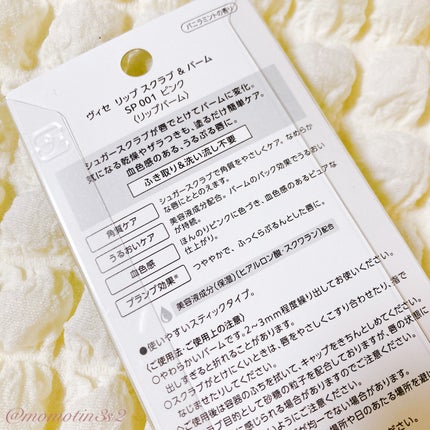 バニラミントの香り
ヴィセ リップ スクラブ & バーム
SP 001 ピンク
〈リップバーム〉
シュガースクラブが唇でとけてバームに変化。
気になる乾燥やザラつきも、塗るだけ簡単ケア。
血色感のある、うるぷる唇に。
ふき取り&洗い流し不要
角質ケア
シュガースクラブで角質をやさしくケア。なめらか
な唇にととのえます。
うるおいケア
美容液成分配合。バームのパック効果でうるおい
が持続。
血色感
ほんのりピンクに色づき、血色感のあるピュアな
仕上がり。
プランプ効果*
つややかで、ふっくらぷるんとした唇に。
美容液成分〈保湿〉(ヒアルロン酸・スクワラン)配合
●使いやすいスティックタイプ。
〈ご使用法・ご使用上の注意〉
○やわらかいバームです。2~3mm程度繰り出してお使いください。
出しすぎると折れることがあります。
○スクラブがとけにくいときは、唇をやさしくこすり合わせたり、指で
なじませたりしてください。
ご使用後は容器のふちを拭いて、キャップをきちんとしめてください。
ラブ目的として砂糖の粒子を配合しておりますが、唇の状態に
激に感じられる場合がありますのでご注意ください。
ようにご注意ください。
が均一でない場合があります。
場所や日のあたる場所を避け
@momotin3s2